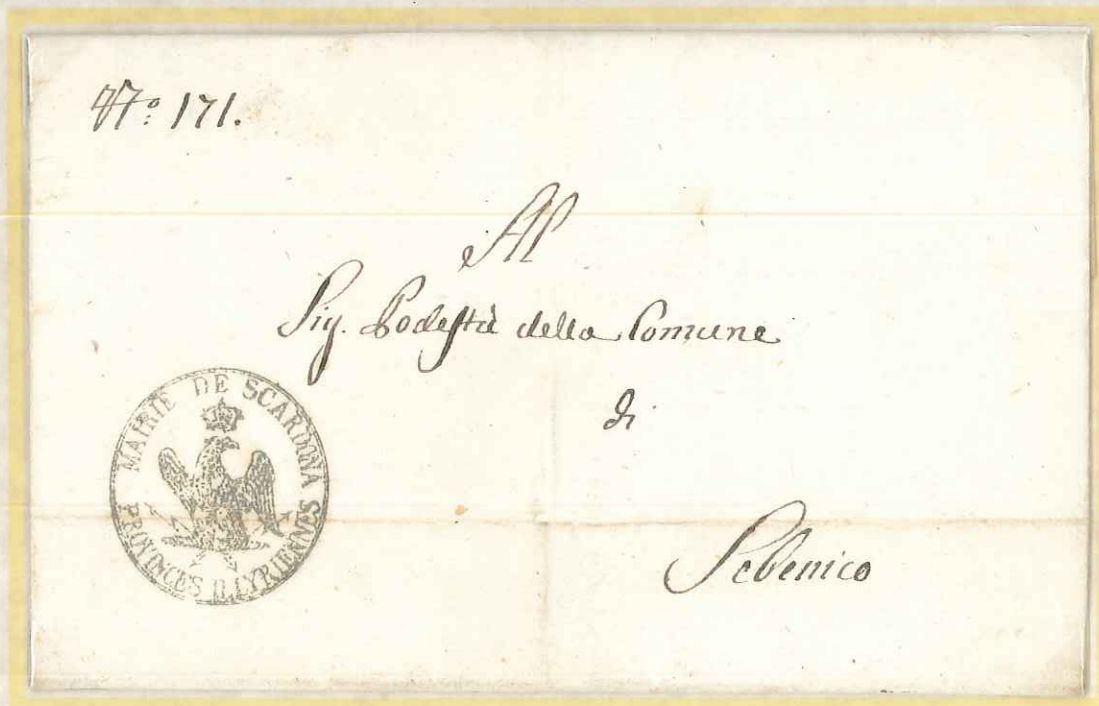 N.º 171.
Al
Sig. Podestà della Comune
di
Sebenico
MAIRIE DE SCARDONA
PROVINCES ILLYRIENNES